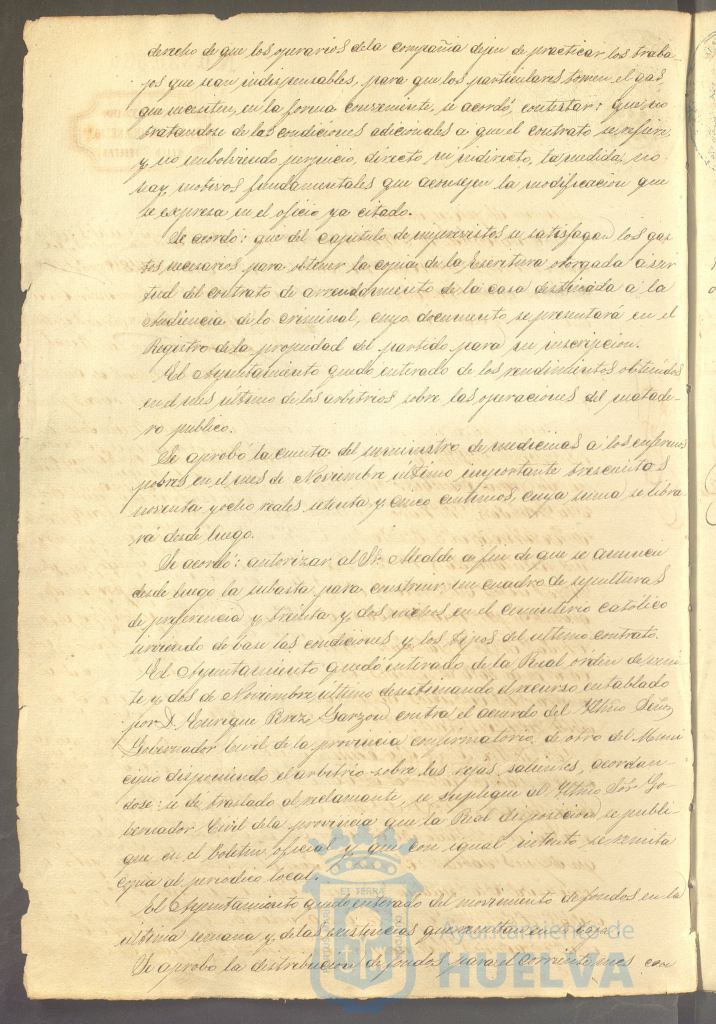 derecho de que los operarios de la compañia dejen de practicar los traba-
jos que sean indispensables, para que los particulares tomen el gas
que necesiten, en la forma conveniente, se acordó, contestar: que no
tratandose de las condiciones adicionales a que el contrato se refiere,
y no embolviendo perjuicio, directo ni indirecto, la medida, no
hay motivos fundamentales que aconsejen la modificacion que
se expresa en el oficio ya citado.
Se acordó: que del capitulo de imprevistos se satisfagan los gas-
tos necesarios para obtener la copia de la Escritura otorgada á vir-
tud del contrato de arrendamiento de la casa destinada á la
Audiencia de lo criminal, cuyo documento se presentará en el
Registro de la propiedad del partido para su inscripcion.
El Ayuntamiento quedó enterado de los rendimientos obtenidos
en el mes ultimo de los arbitrios sobre las operaciones del matade-
ro publico.
Se aprobó la cuenta del suministro de medicinas a los enfermos
pobres en el mes de Noviembre ultimo importante trescientos
noventa y ocho reales setenta y cinco centimos, cuya suma se libra-
rá desde luego.
Se acordó: autorizar al Sr. Alcalde a fin de que se anuncie
desde luego la subasta para construir un cuadro de sepulturas
de preferencia y treinta y dos nichos en el cementerio católico
sirviendo de base las condiciones y los tipos del ultimo contrato.
El Ayuntamiento quedó enterado de la Real orden de vein-
te y dos de Noviembre ultimo desestimando el recurso entablado
por D. Enrique Perez Garzon contra el acuerdo del Iltmo Señor
Gobernador Civil de la provincia confirmatorio de otro del Muni-
cipio disponiendo el arbitrio sobre las rejas salientes, acordan-
dose: se dé traslado al reclamante, se suplique al Iltmo Sór Go-
bernador Civil de la provincia que la Real disposicion se publi-
que en el Boletin oficial y que con igual intento se remita
copia al periodico local.
El Ayuntamiento quedó enterado del movimiento de fondos en la
ultima semana y de las existencias que resultan en caja.
Se aprobó la distribucion de fondos para el corriente mes con
Ayuntamiento de
HUELVA